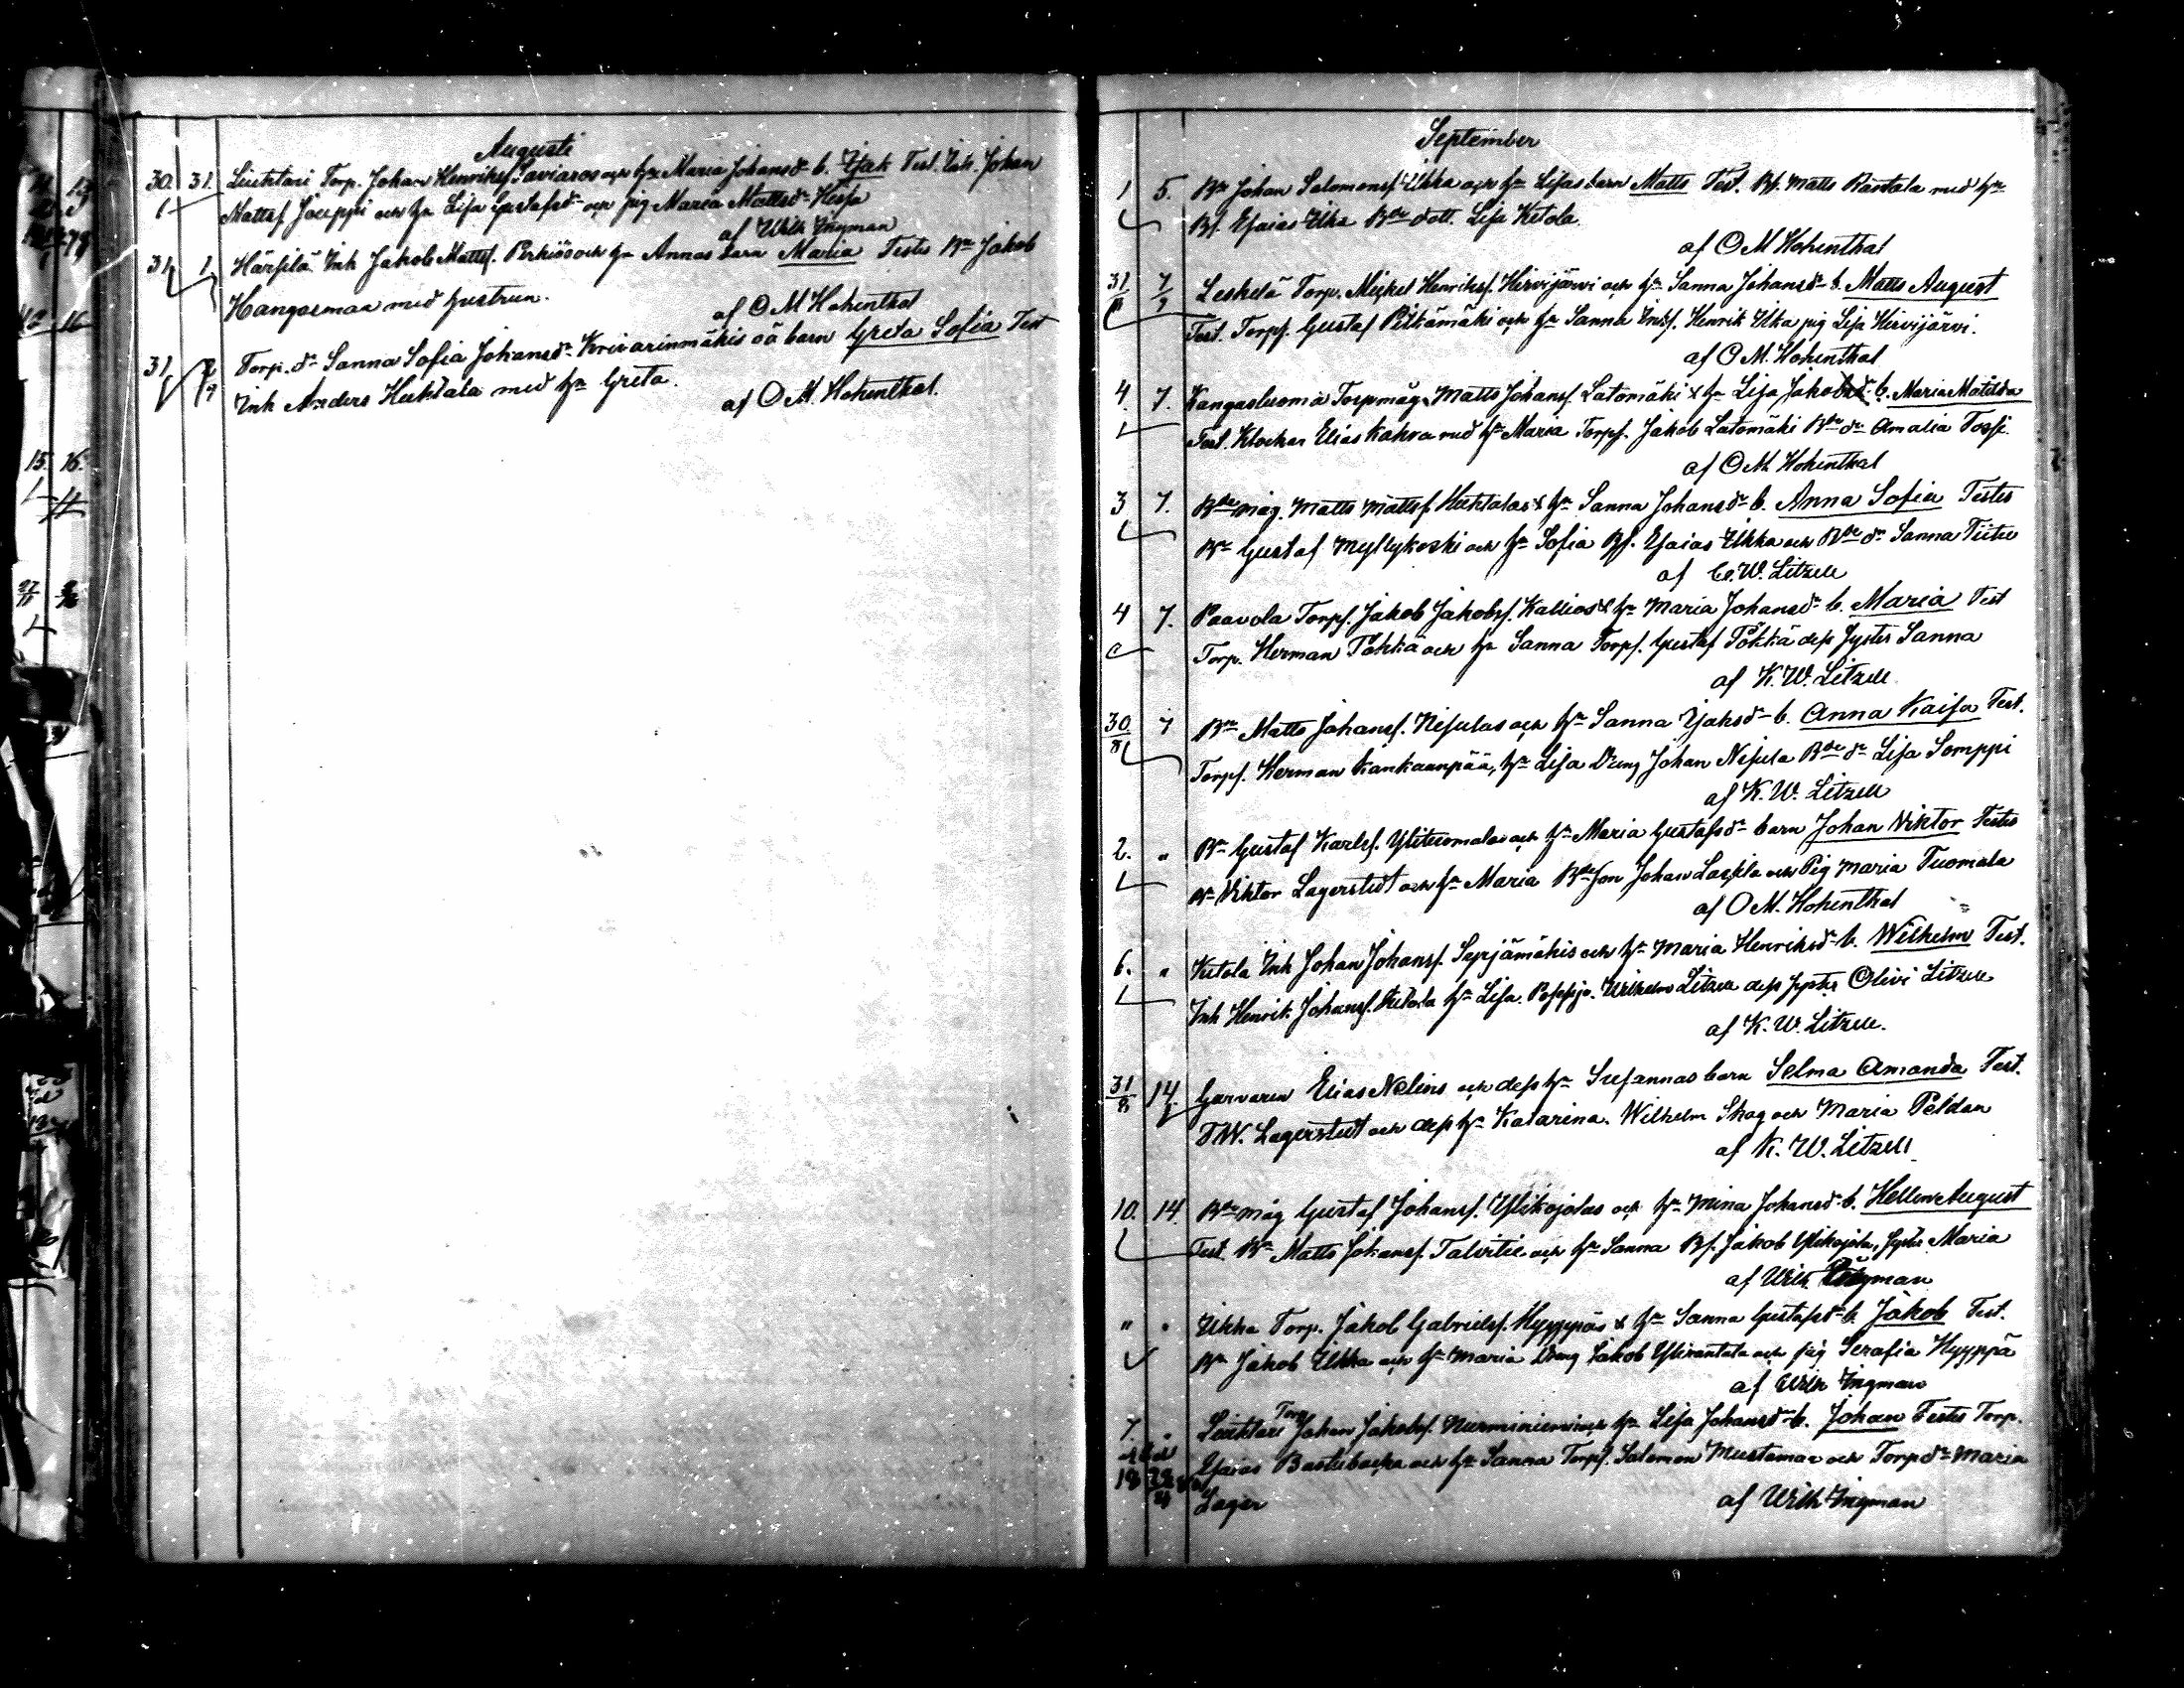 Augusti
30. 31. Liuhtari Torp. Johan Henrikss. Saviaros och h:u Maria Johansd:r b. Isak Test. Inh. Johan
Mattss. Jouppi och h:u Lisa Gustafsd:r och pig Maria Mattsd:r Hissa
af Wilh Ingman
31 1 Härsilä Inh Jakob Mattss. Perkiös och h:u Annas barn Maria Testes B:n Jakob
Hangasmaa med hustrun.
af O M Hohenthal
31 2/9 Torp. d:r Sanna Sofia Johansd:r oä barn Greta Sofia Test
Inh Anders Huhtala med h:u Greta.
af O M. Hohenthal.
September
1 5. B:n Johan Salomonss. Ukka och h:u Lisas barn Matts Test. Bs. Matts Rantala med h:u
Bs. Esaias Ukka B:de dott. Lisa Ketola
af O M Hohenthal
31/8 7/9 Leskelä Torp. Mickel Henrikss. Hirvijärvi och h:u Sanna Johansd:r b. Matts August
Test. Torps. Gustaf Pitkämäki och h:u Sanna Henrik Ukka pig Lisa Hirvijärvi.
af O M. Hohenthal
4. 7. Kangasluoma Torpmåg Matts Johanss. Latomäki & h:u Lisa Jakobsd:r b. Maria Matilda
Test. Klockar Elias Kahra med h:u Maria Torps. Jakob Latomäki B:de d:r Amalia Tossi.
af O M Hohenthal
3 7. B:demåg. Matts Mattss. Huhtalas & h:u Sanna Johansd:r b. Anna Sofia Testes
B:n Gustaf Myllykoski och h:u Sofia Bs. Esaias Ukka och B:de d:r Sanna Tiitu
af C. W. Litzell
4 7. Paavola Torps. Jakob Jakobss. Kallios & h:u Maria Johansd:r b. Maria Test
Torp. Herman Töhkä och h:u Sanna Torps. Gustaf Tökkä dess syster Sanna
af K. W. Litzell
30/8 7 B:n Matts Johanss. Nisulas och h:u Sanna Isaksd:r b. Anna Kaisa Test.
Torps. Herman Kankaanpää, h:u Lisa Dreng Johan Nisula B:de d:r Lisa Somppi
af K. W. Litzell
2. " B:n Gustaf Karlss. Ylituomalas och h:u Maria Gustafsd:r barn Johan Viktor Testes
B:n Viktor Lagerstedt och h:u Maria B:de son Johan Lassila och Pig Maria Tuomala
af O M. Hohenthal
6. " Ketola Inh Johan Johanss. Sepjämäkis och h:u Maria Henriksd:r b. Wilhelm Test.
Inh Henrik Johanss. Ketola h:u Lisa. Wilhelm Litzell dess syster Olivi Litzell
af K. W. Litzell.
31/8 14. Garvaren Elias Nelins och dess h:u Susannas barn Selma Amanda Test.
F W. Lagerstedt och dess h:u Katarina. Wilhelm Skog och Maria Peldan
af K. W. Litzell
10. 14. B:demåg Gustaf Johanss. Ylikojolas och h:u Mina Johansd:r b. Hellin August
Test. B:n Matts Johanss. Talvitie och h:u Sanna Bs. Jakob Ylikojola, syster Maria
af Wilh. Ingman
" " Ukka Torp. Jakob Gabrielss. Hyyppäs & h:u Sanna Gustafsd:r b. Jakob Test.
B:n Jakob Ukka och h:u Maria Dreng Jakob Ylirantala och pig Serafia Hyyppä
af Wilh Ingman
7. " Liuhtari Torp Johan Jakobss. Nurminiemi och h:u Lisa Johansd:r b. Johan Testes Torp.
Esaias Bastubacka och h:u Sanna Torps. Salomon Mustamaa och Torp d:r Maria
Lager af Wilh Ingman